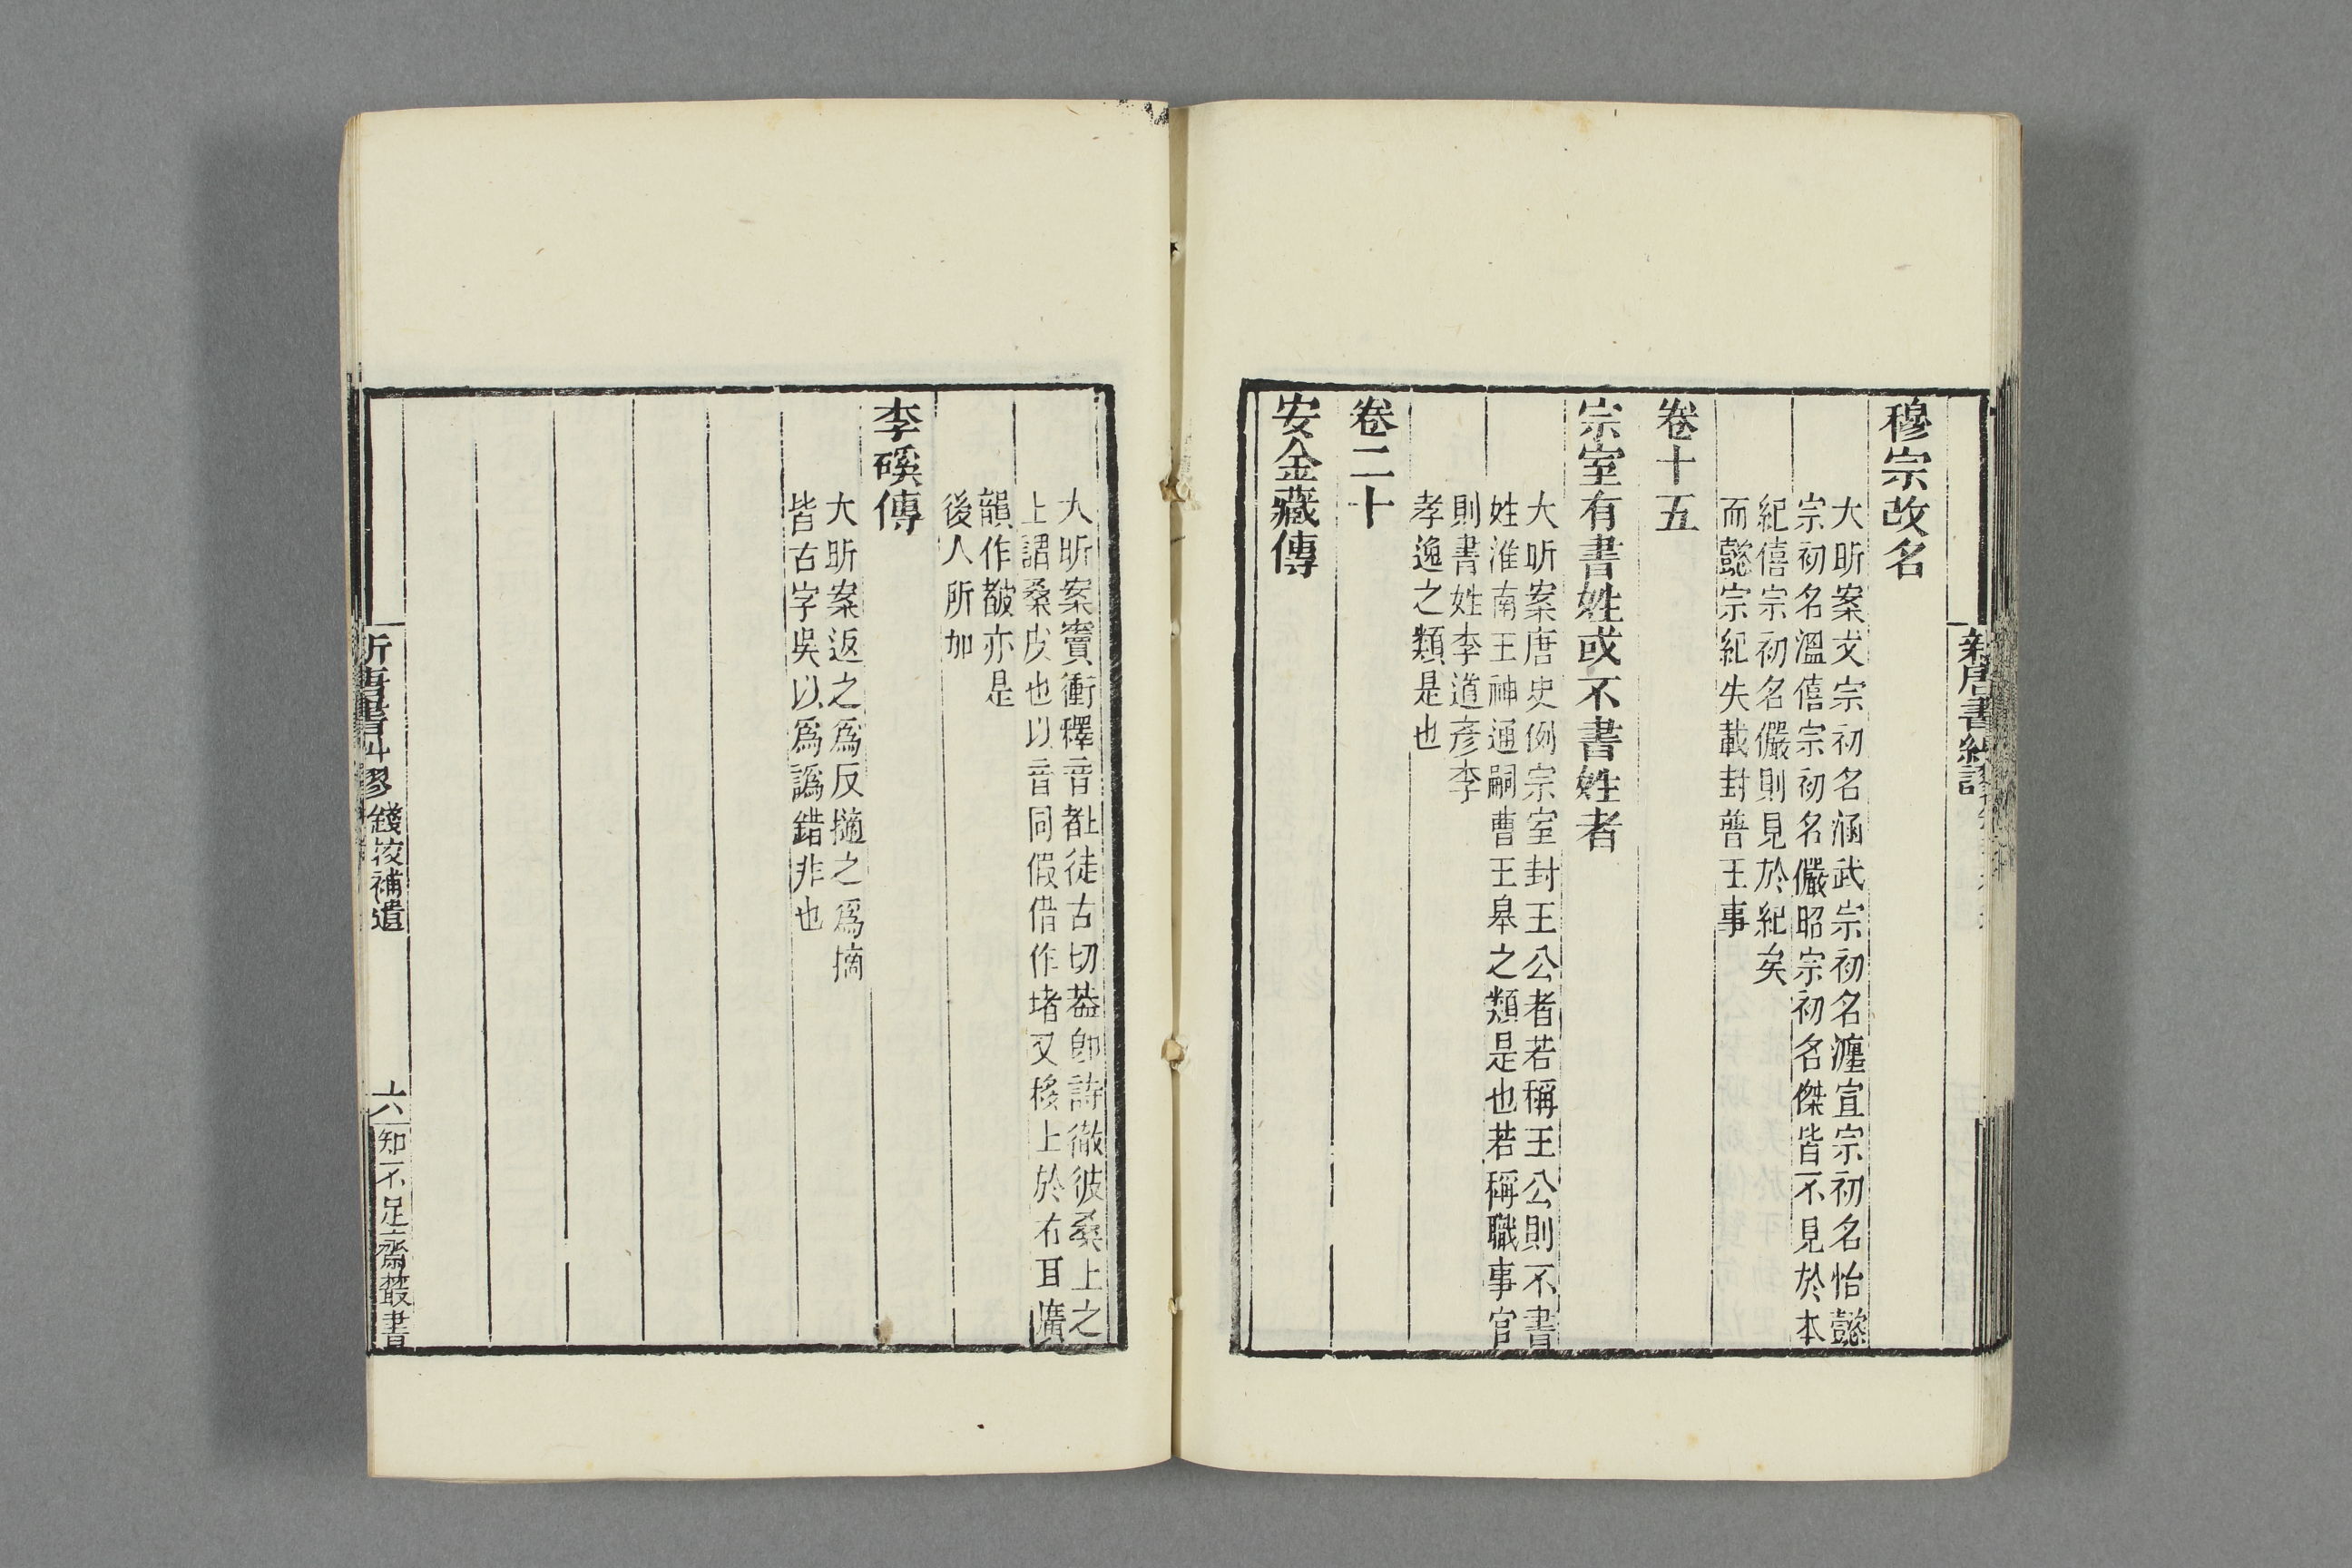 穆宗改名
大昕案文宗初名涵武宗初名瀍宣宗初名怡懿
宗初名溫僖宗初名儼昭宗初名傑皆不見於本
紀僖宗初名儼則見於紀矣
而懿宗紀失載封普王事
卷十五
宗室有書姓或不書姓者
大昕案唐史例宗室封王公者若稱王公則不書
姓淮南王神通嗣曹王臯之類是也若稱職事官
則書姓李道彥李
孝逸之類是也
卷二十
安金藏傳
大昕案竇衝釋音𣞙徒古切葢卽詩徹彼桑土之
上謂桑皮也以音同假借作堵又移上於右耳廣
韻作㪇亦是
後人所加
李磎傳
大昕案返之爲反擿之爲摘
皆古字吳以爲譌錯非也
錢校補遺
六
知不足齋叢書